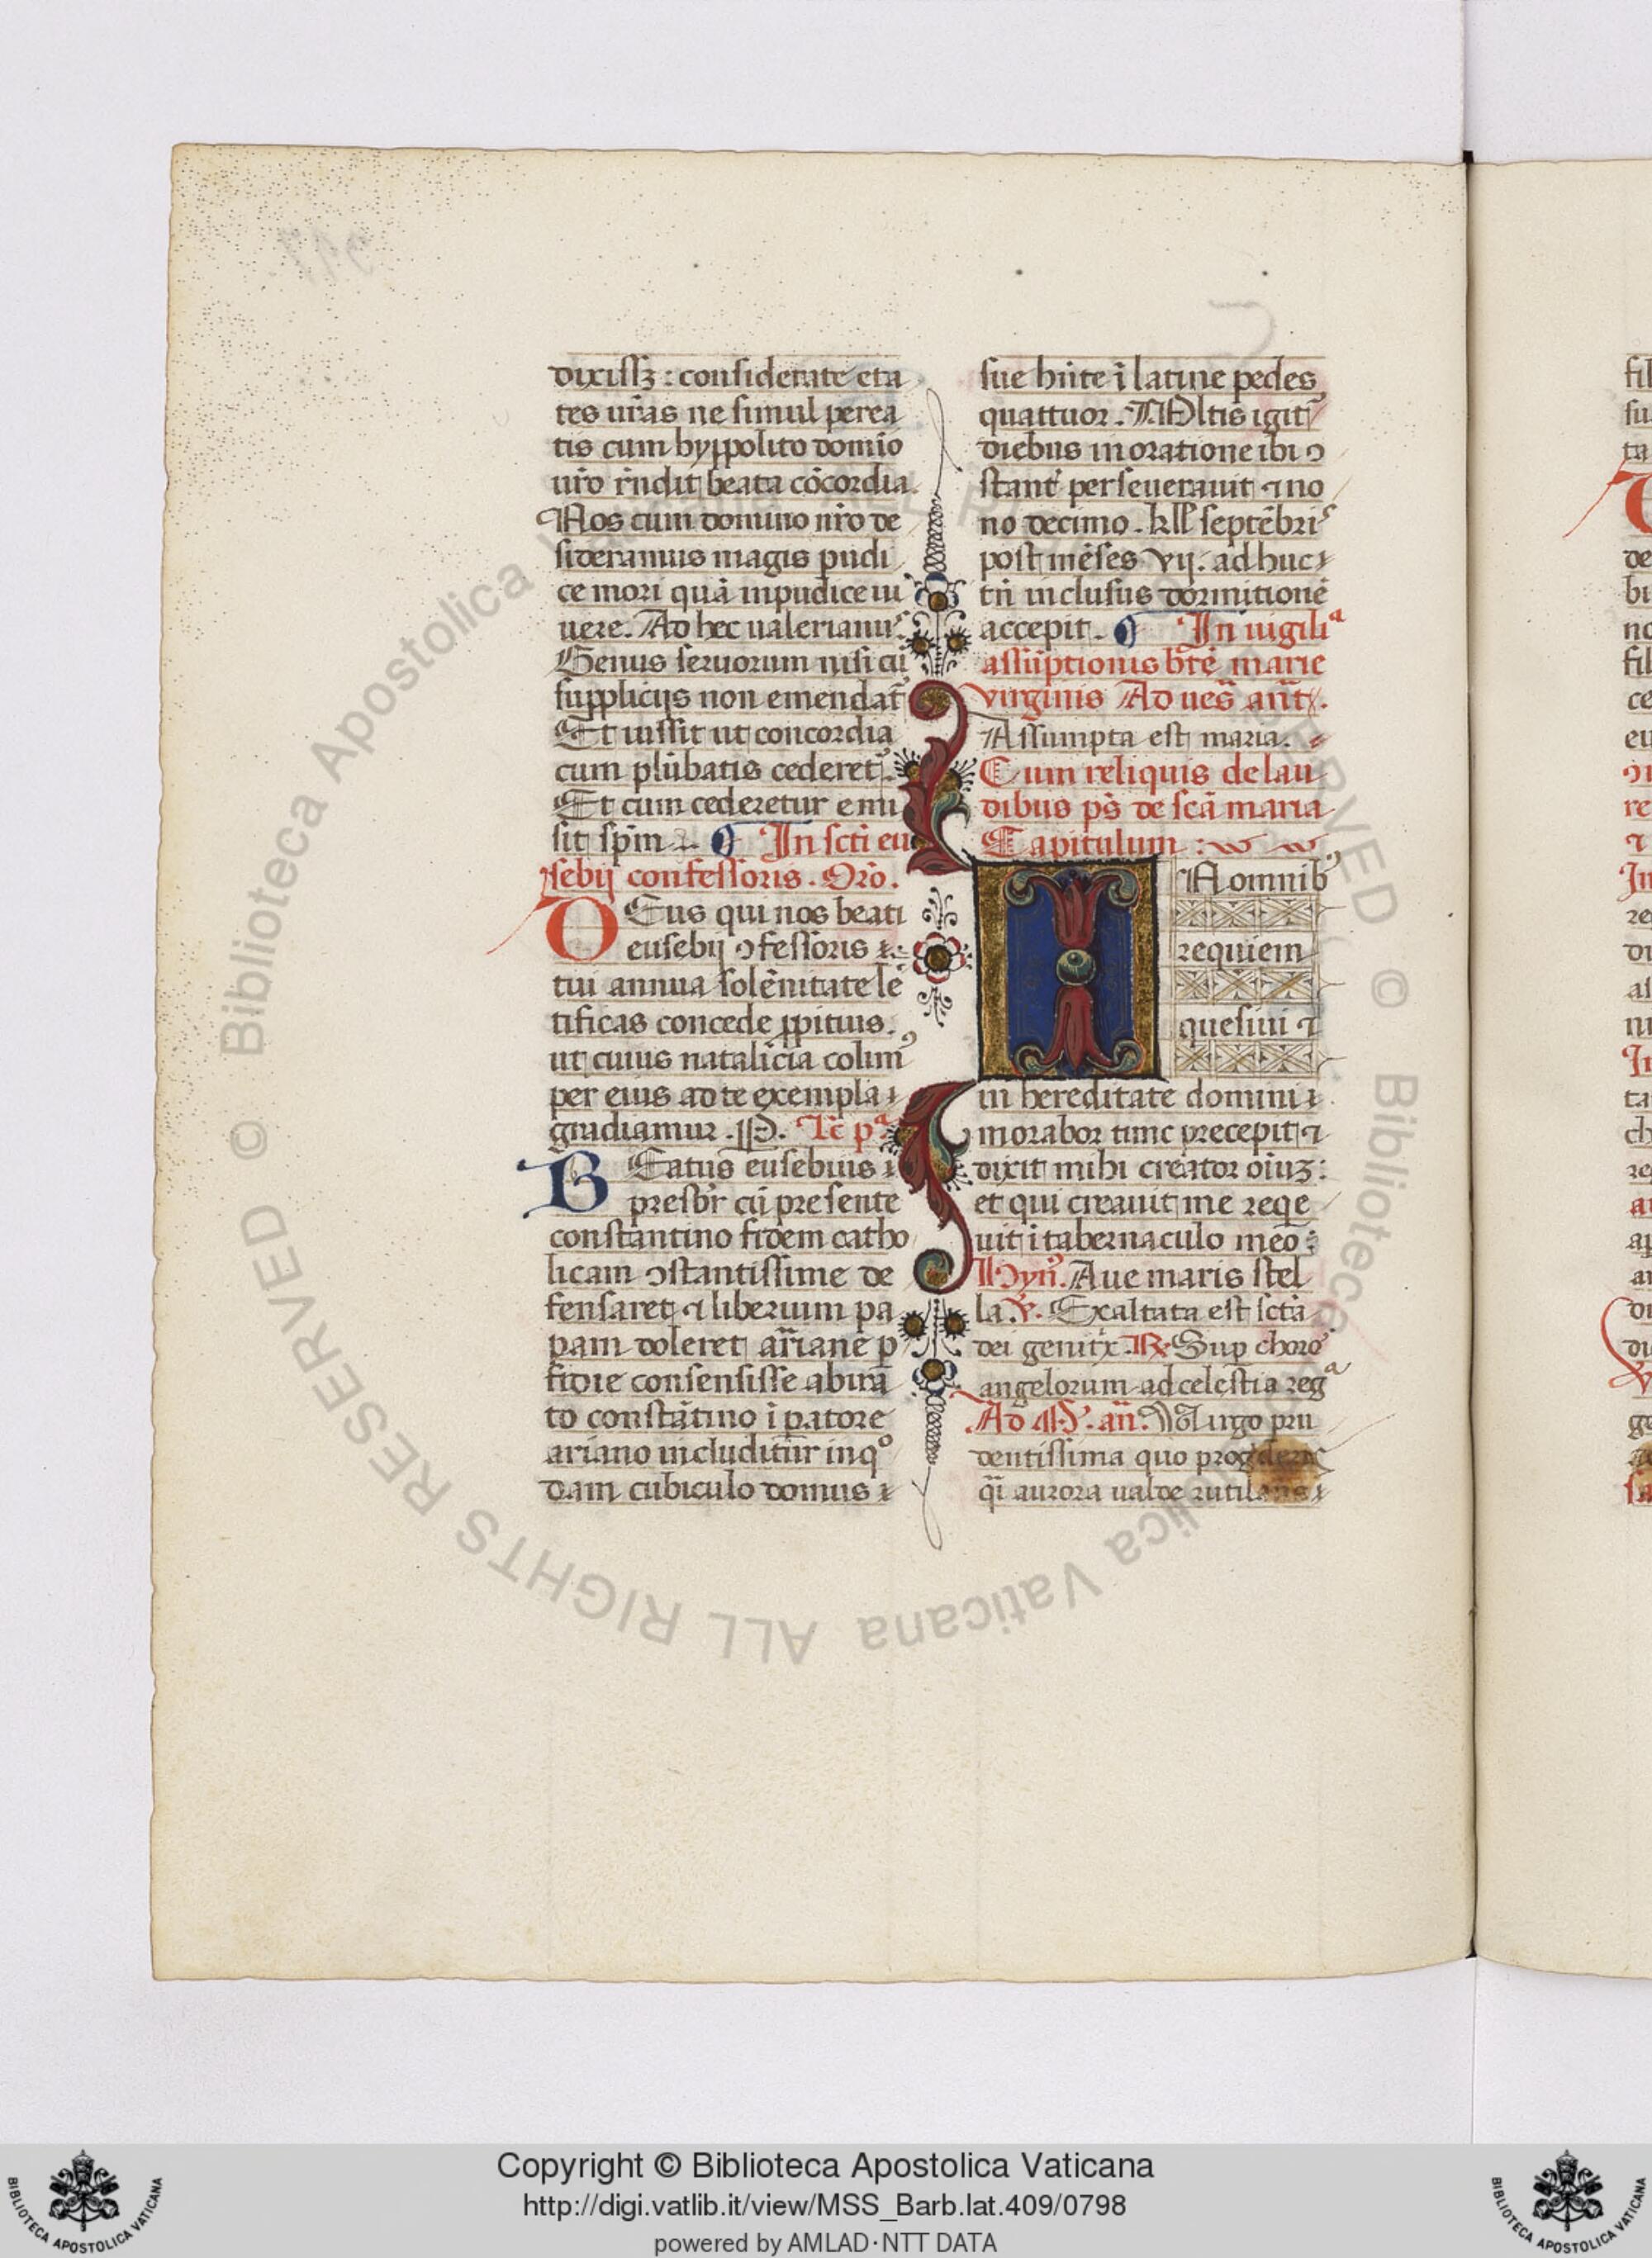 dixissꝫ : considerate eta
tes ur̃as ne simul perea
tis cum hyppolito domĩo
ur̃o rñdit beata cõcordia.
Nos cum domino nr̃o de
sideramus magis pudi
ce mori quã inpudice ui
uere. Ad hec ualerianus.
Genus seruorum nisi cũ
supplicijs non emendat᷑
Et iussit ut concordia
cum plũbatis cederet᷑.
Et cum cederetur emi
sit spm̃. ¶ In sc̃ti eu
sebij confessoris. Or̃o.
DEus qui nos beati
eusebij ↄfessoris
tui annua solẽnitate le
tificas concede ꝓpitius.
ut cuius natalicia colimꝰ
per eius ad te exempla
gradiamur. P. Lc̃ pª
BEatus eusebius
presbr̃ cũ presente
constantino fidem catho
licam ↄstantissime de
fensaret ⁊ liberium pa
pam doleret arriane ꝑ
fidie consensisse ab ira
to constãtino ĩꝑatore
ariano includitur in qº
dam cubiculo domus
sue hñte ĩ latitine pedes
quattuor. Mltis igit᷑
diebus in oratione ibi ↄ
stant᷑ perseuerauit ⁊ no
no decimo. kll̃ septẽbris
post mẽses vij. ad huc
tñ inclusus dormitionẽ
accepit. ¶ In uigiliª
assũptionis bt̃e marie
virginis Ad ues̃ añt.
Assumpta est maria.
Cum reliquis de lau
dibus ps̃ de sc̃a maria
Capitulum :
IN omnibꝰ
requiem
quesiui ⁊
in hereditate domini
morabor tunc precepit ⁊
dixit mihi creator oĩuꝫ :
et qui creauit me reqe
uit ĩ tabernaculo meo :
Hyn̄. Aue maris stel
la ℣. Exaltata est sc̃tã
dei genitx̃. ℟ Suꝑ choro
angelorum ad celestia regª
Ad M. añ. Virgo pru
dentissima quo progderis
qĩ aurora ualde rutilans
Copyright © Biblioteca Apostolica Vaticana
http://digi.vatlib.it/view/MSS_Barb.lat.409/0798
powered by AMLAD·NTT DATA
© Biblioteca Apostolica Vaticana ALL RIGHTS RESERVED
BIBLIOTECA APOSTOLICA VATICANA
BIBLIOTECA APOSTOLICA VATICANA